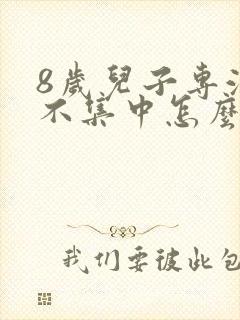 8歲兒子專注
不集中怎麼
我们要彼此包